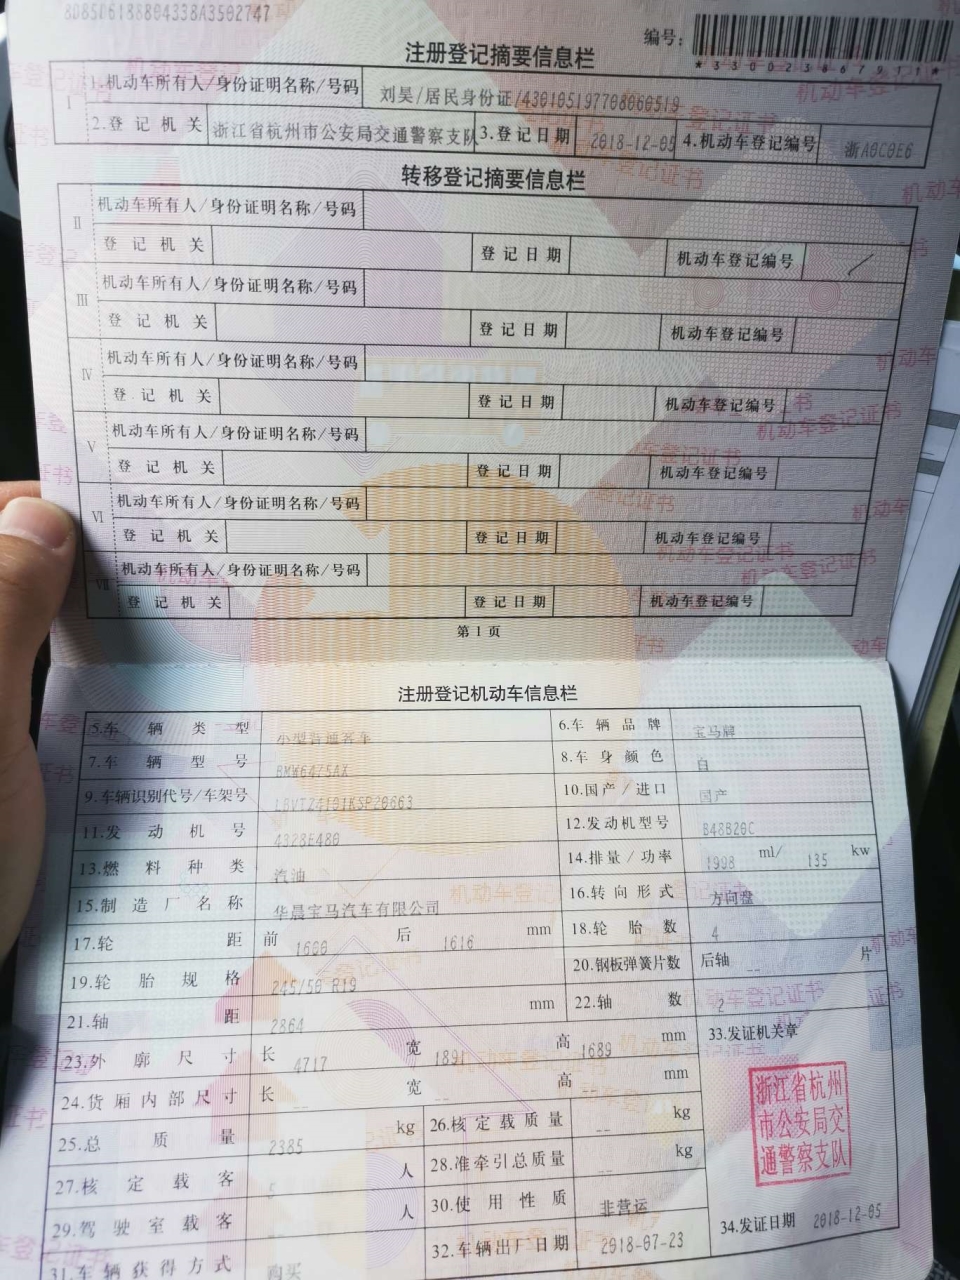 注册登记摘要信息栏
编号:
Ⅰ 1.机动车所有人/身份证明名称/号码 刘昊/居民身份证/430105197708060519
2.登记机关 浙江省杭州市公安局交通警察支队 3.登记日期 2018-12-05 4.机动车登记编号 浙A0C0E6
转移登记摘要信息栏
Ⅱ 机动车所有人/身份证明名称/号码
登记机关 登记日期 机动车登记编号
Ⅲ 机动车所有人/身份证明名称/号码
登记机关 登记日期 机动车登记编号
Ⅳ 机动车所有人/身份证明名称/号码
登记机关 登记日期 机动车登记编号
Ⅴ 机动车所有人/身份证明名称/号码
登记机关 登记日期 机动车登记编号
Ⅵ 机动车所有人/身份证明名称/号码
登记机关 登记日期 机动车登记编号
Ⅶ 机动车所有人/身份证明名称/号码
登记机关 登记日期 机动车登记编号
第1页
注册登记机动车信息栏
5.车辆类型 小型普通客车 6.车辆品牌 宝马牌
7.车辆型号 BMW6475AX 8.车身颜色 白
9.车辆识别代号/车架号 10.国产/进口 国产
11.发动机号 4328E480 12.发动机型号 B48B20C
13.燃料种类 汽油 14.排量/功率 1998 ml/ 135 kw
15.制造厂名称 华晨宝马汽车有限公司 16.转向形式 方向盘
17.轮距 前 1600 后 1616 mm 18.轮胎数 4
19.轮胎规格 245/50 R19 20.钢板弹簧片数 后轴 -- 片
21.轴距 2864 mm 22.轴数 2
23.外廓尺寸 长 4717 宽 1891 高 1689 mm 33.发证机关章
24.货厢内部尺寸 长 -- 宽 -- 高 -- mm
浙江省杭州
市公安局交
通警察支队
25.总质量 2385 kg 26.核定载质量 -- kg
27.核定载客 5 人 28.准牵引总质量 -- kg
29.驾驶室载客 人 30.使用性质 非营运
31.车辆获得方式 购买 32.车辆出厂日期 2018-07-23 34.发证日期 2018-12-05